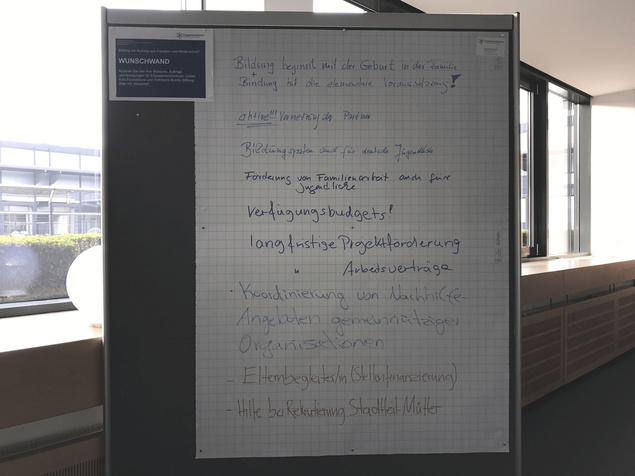 WUNSCHWAND
Bildung beginnt mit der Geburt in der Familie
+
Bindung ist die elementare Voraussetzung!
aktive!!! Vernetzung der Partner
Bildungspaten auch für deutsche Jugendliche
Förderung von Familienarbeit auch für
Jugendliche
Verfügungsbudgets!
langfristige Projektförderung
" Arbeitsverträge
· Koordinierung von Nachhilfe-
Angeboten gemeinnütziger
Organisationen
- Elternbegleiter/in (Stellenfinanzierung)
- Hilfe bei Rekrutierung Stadtteil Mütter